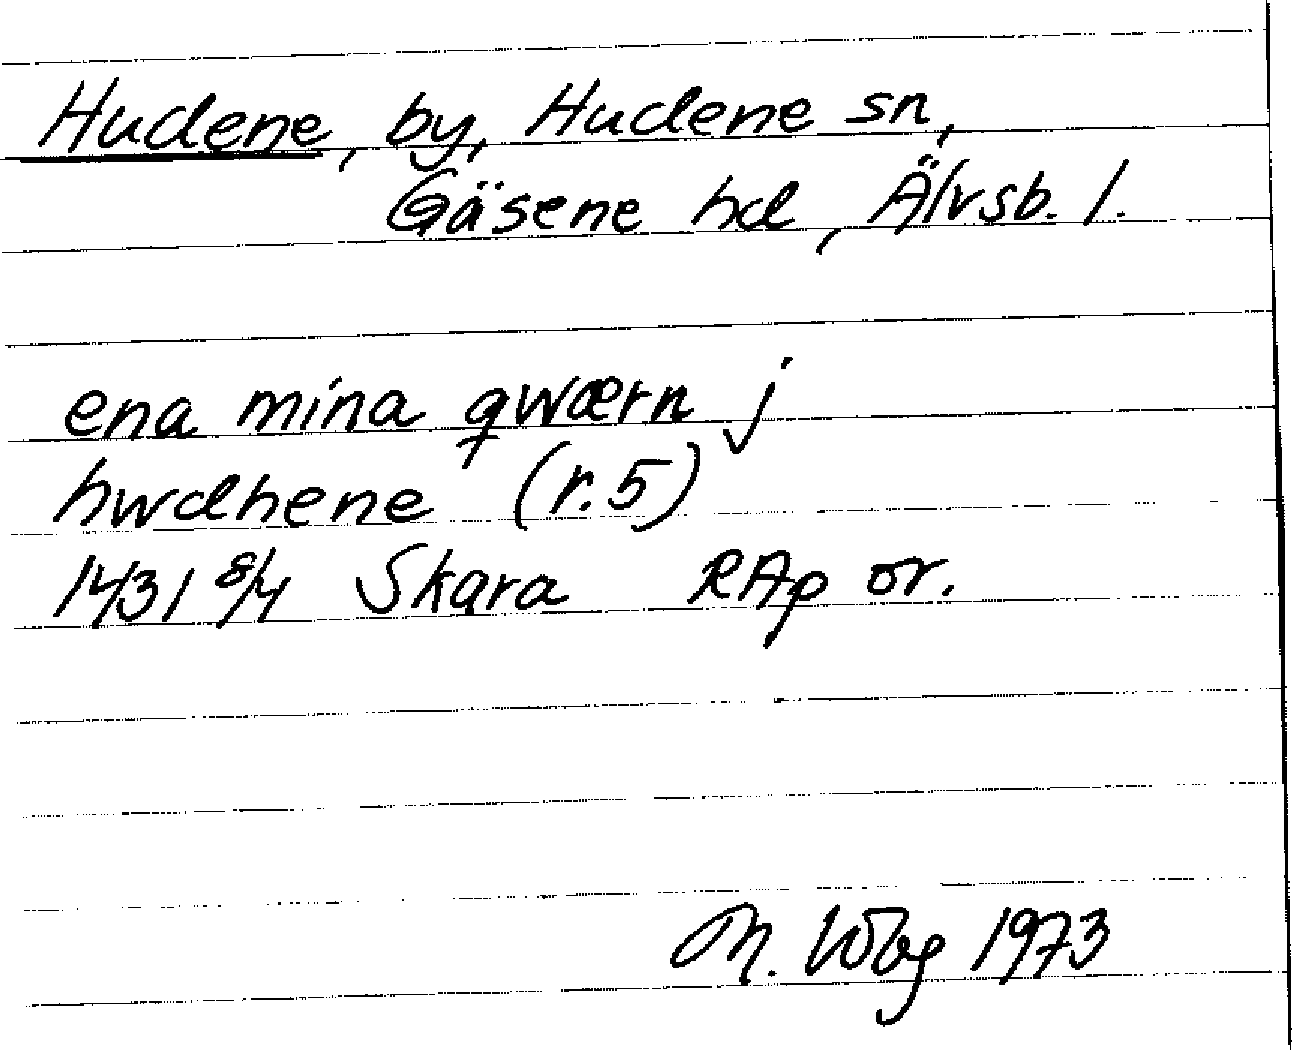 Hudene, by, Hudene sn,
Gäsene hd, Älvsb. l.
ena mina qwærn j
hwdhene (r. 5)
1431 8/4 Skara RAp or.
M. Wbg 1973